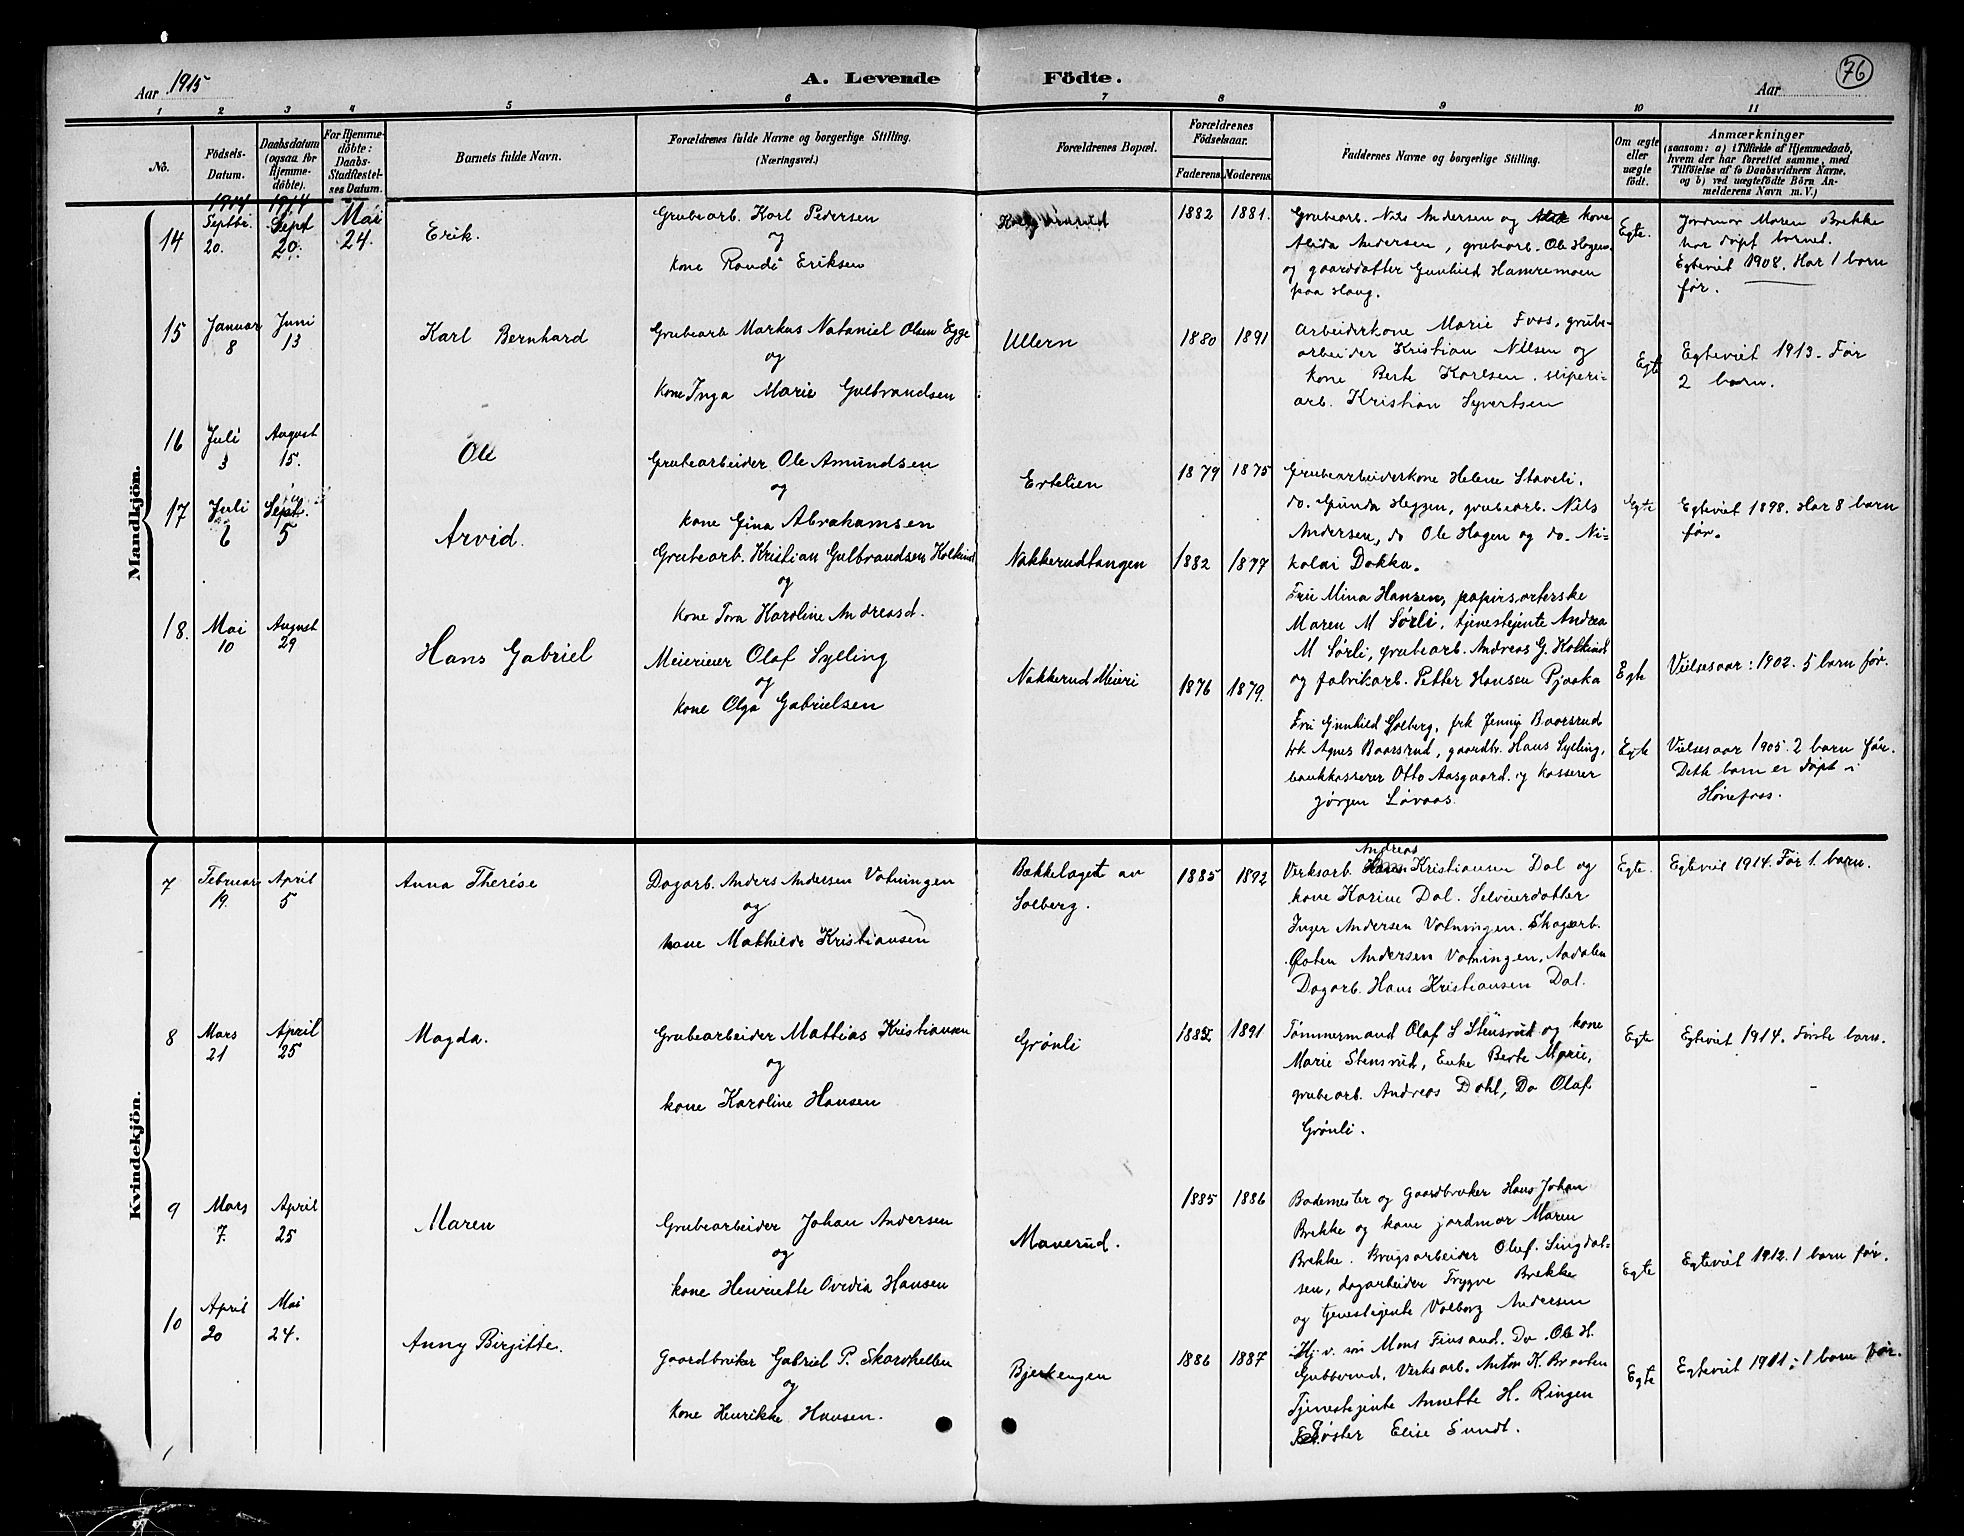 Aar 1915
A. Levende Födte.
Aar
76
1 2 3 4 5 6 7 8 9 10 11
No.
Födsels-
Datum.
Daabsdatum
(ogsaa for
Hjemme-
döbte).
For Hjemme-
döbte:
Daabs-
Stadfæstel-
ses Datum.
Barnets fulde Navn.
Forældrenes fulde Navne og borgerlige Stilling.
(Næringsvei.)
Forældrenes Bopæl.
Forældrenes
Födselsaar.
Faderens. Moderens.
Faddernes Navne og borgerlige Stilling.
Om ægte
eller
uægte
födt.
Anmærkninger
(saasom: a) i Tilfælde af Hjemmedaab,
hvem der har forrettet samme, med
Tilföielse af to Daabsvidners Navne,
og b) ved uægtefödte Börn An-
melderens Navn m. V.)
Mandkjön.
14
1914
Septbr.
20.
1914
Sept
20.
Mai
24.
Erik.
Grubearb. Karl Pedersen
og
kone Randi Eriksen
1882
1881.
Grubearb. Nils Andersen og kone
Alida Andersen, grubearb. Ole Hagen
og gaarddatter Gunhild Hamremoen
paa Haug.
Egte.
Jordmor Maren Brekke
har döpt barnet.
Egteviet 1908. Har 1 barn
før.
15
Januar
8
Juni
13
Karl Bernhard
Grubearb Markus Nataniel Olsen Egge
og
kone Inga Marie Gulbrandsen
Ullern
1880
1891
Arbeiderkone Marie Foss, grube-
arbeider Kristian Nilsen og
kone Berte Karlsen. sliperi-
arb. Kristian Syvertsen
Egte
Egteviet 1913. Før
2 barn.
16
Juli
3
August
15.
Ole
Grubearbeider Ole Amundsen
og
kone Gina Abrahamsen
Ertelien
1879
1875
Grubearbeiderkone Helene Staveli.
do. Gunda Heggen, grubearb. Nils
Andersen, do Ole Hagen og do. Ni-
kolai Dokka.
Egte
Egteviet 1898. Har 8 barn
før.
17
Juli
6
Sept.
5
Arvid.
Grubearb. Kristian Gulbrandsen Kolkind
og
kone Tora Karoline Andreasd.
Nakkerudtangen
1882
1877
Frue Mina Hansen, papirsorterske
Maren M Sørli, tjenestejente Andrea
M Sørli, grubearb. Andreas G. Kolkind
og fabrikarb. Petter Hansen Pjaaka
Egte
Vielsesaar: 1902. 5 barn før.
18.
Mai
10
August
29
Hans Gabriel
Meierieier Olaf Sylling
og
kone Olga Gabrielsen
Nakkerud Meieri
1876
1879.
Fru Gunhild Solberg, frk Jenny Baarsrud
frk Agnes Baarsrud, gaardbr. Hans Sylling,
bankkasserer Otto Aasgaard. og kasserer
Jørgen Løvaas.
Egte
Vielsesaar 1905. 2 barn før.
Dette barn er döpt i
Hønefoss.
Kvindekjön.
7
Februar
19.
April
5
Anna Therése
Dagarb. Anders Andersen Vatningen
og
kone Mathilde Kristiansen
Bakkelaget av
Solberg.
1885
1892
Andreas
Verksarb. Kristiansen Dal og
kone Karine Dal. Selveierdatter
Inger Andersen Vatningen. Skogarb.
Østen Andersen Vatningen, Aadalen
Dagarb. Hans Kristiansen Dal.
Egte.
Egteviet 1914. Før 1 barn.
8
Mars
21
April
25
Magda.
Grubearbeider Mattias Kristiansen
og
kone Karoline Hansen
Grønli
1882
1891
Tømmermand Olaf S Stensrud og kone
Marie Stensrud, Enke Berte Marie,
grubearb. Andreas Dahl, Do Olaf
Grønli.
Egte
Egteviet 1914. Første barn.
9
Mars
7.
April
25
Maren
Grubearbeider Johan Andersen
og
kone Henriette Ovedia Hansen
Maverud.
1885
1886
Bademester og Gaardbruker Hans Johan
Brekke og kone jordmor Maren
Brekke. Brugsarbeider Oluf. Singdal-
sen, dagarbeider Trygve Brekke
og tjenestejente Valborg Andersen
Egte
Egteviet 1912. 1 barn før.
10
April
20
Mai
24.
Anny Birgitte.
Gaardbruker Gabriel P. Skarshellen
og
kone Henrikke Hansen.
Bjerkengen
1886
1887
Hj. v. søn Mons Finsand. Do. Ole H.
Gubberud, Verksarb. Anton K. Braaten
Tjenestejente Annette H. Ringen
Søster Elise Sundt.
Egte
Egteviet 1911. 1 barn før.